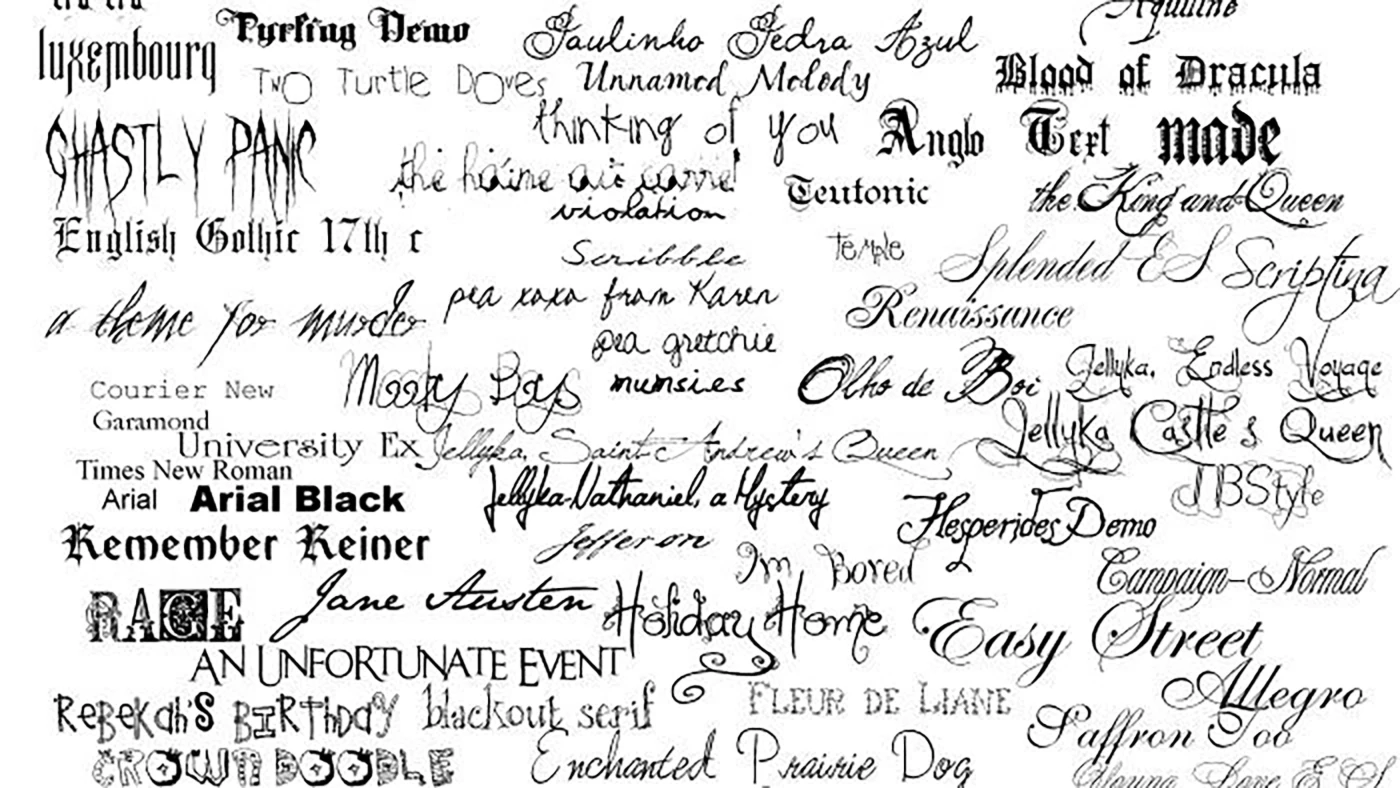 Aquiline
luxembourg
Pyrling Demo
Paulinho Pedra Azul
Two Turtle Doves
Unnamed Melody
Blood of Dracula
GHASTLY PANIC
thinking of you
Anglo Text
made
the
violation
Teutonic
the King and Queen
English Gothic 17th c
Scribble
Temple
Splended ES Scripting
a theme for murder
pea xoxo from Karen
Renaissance
pea gretchie
Courier New
Moody Boys
mumsies
Olho de Boi
Jellyka, Endless Voyage
Garamond
University Ex
Jellyka, Saint-Andrew's Queen
Jellyka Castle's Queen
Times New Roman
Arial
Arial Black
Jellyka-Nathaniel, a Mystery
JBStyle
Hesperides Demo
Remember Reiner
Jefferson
Im Bored
Campaign-Normal
RAGE
Jane Austen
Holiday Home
Easy Street
AN UNFORTUNATE EVENT
Allegro
Rebekah's Birthday
blackout serif
FLEUR DE LIANE
Saffron Too
CROWN DOODLE
Enchanted Prairie Dog
Young Love E S